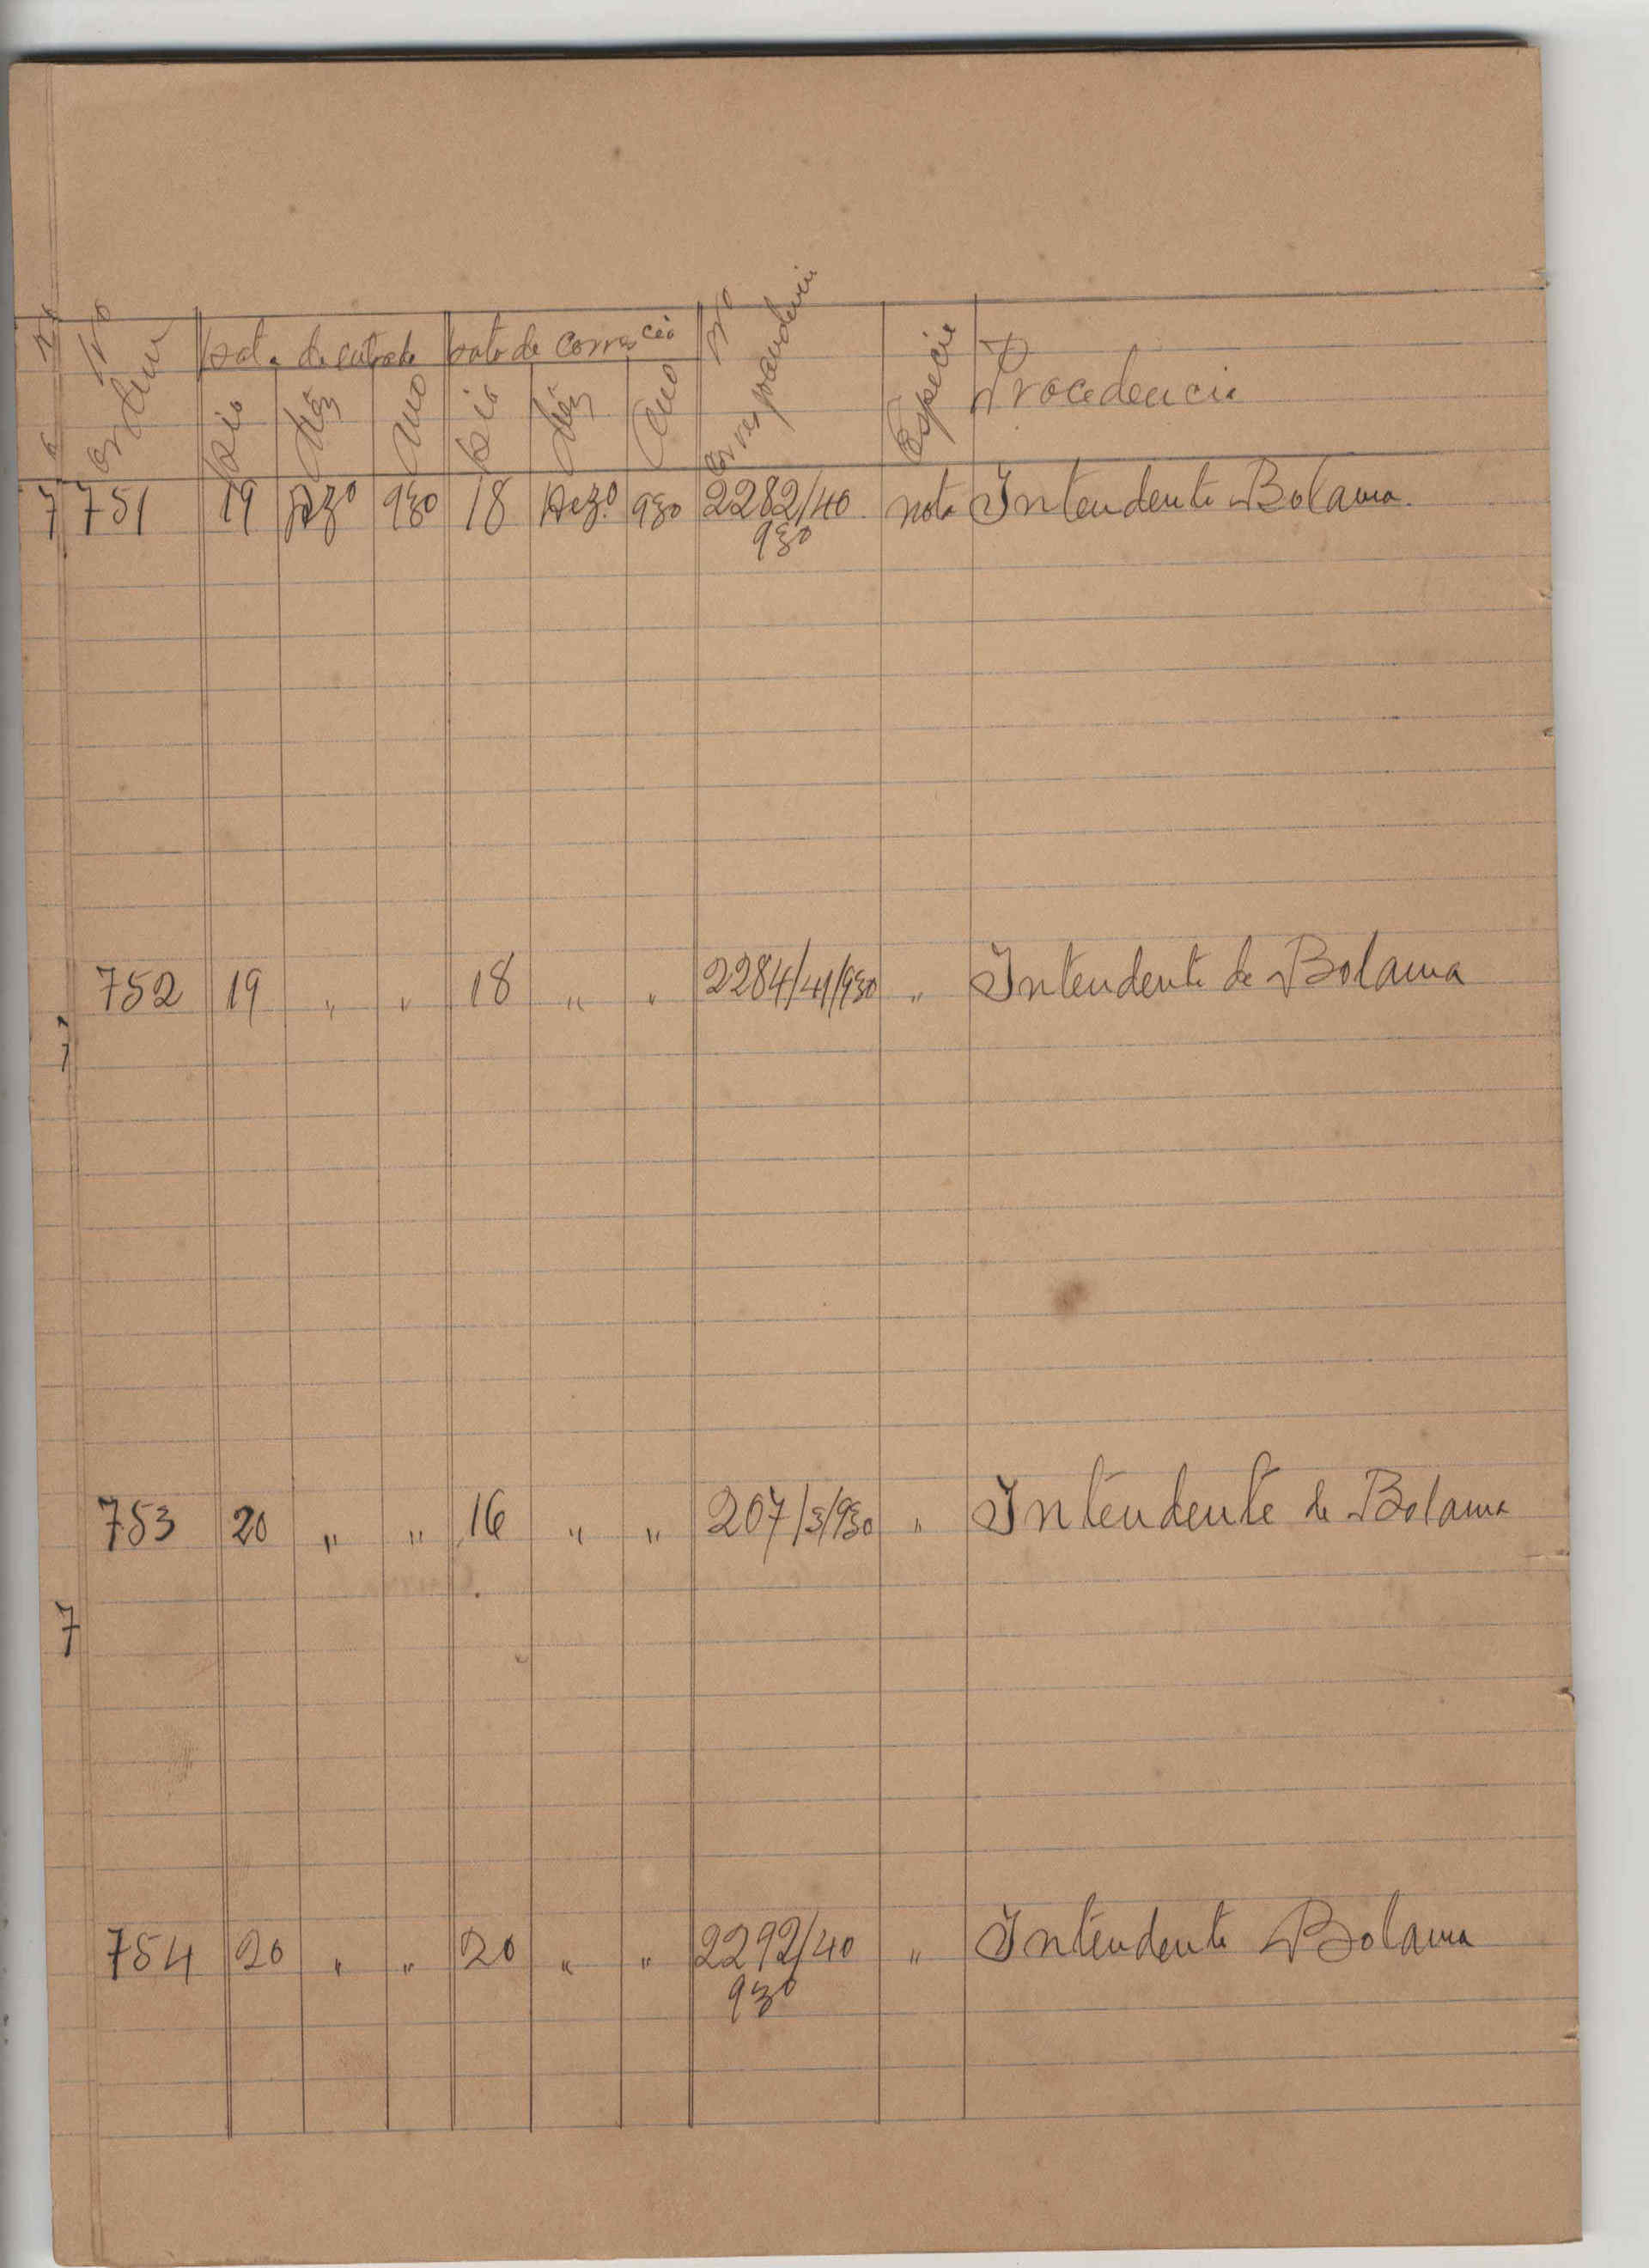 Nº ordem
Data de entrada
Data de corresᶜⁱᵃ
Nº correspondencia
Especie
Procedencia
Dia Mês Ano Dia Mês Ano
7 751 19 Dezº 930 18 Dezº 930 2282/40 nota Intendente Bolama.
930
752 19 " " 18 " " 2284/41/930 " Intendente de Bolama
753 20 " " 16 " " 207/3/930 " Intendente de Bolama
7
754 20 " " 20 " " 2292/40 " Intendente Bolama
930